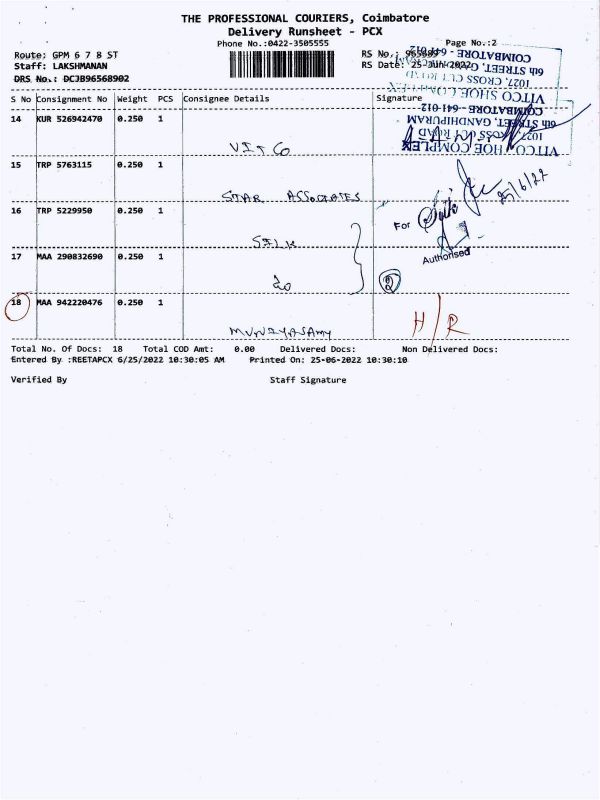 THE PROFESSIONAL COURIERS, Coimbatore
Delivery Runsheet - PCX
Phone No.:0422-3505555
Page No.:2
Route: GPM 6 7 8 ST
RS No.:
Staff: LAKSHMANAN
RS Date: 25-Jun-2022
DRS No.: DCJB96568902
S No Consignment No Weight PCS Consignee Details Signature
14 KUR 526942470 0.250 1
VITCO
15 TRP 5763115 0.250 1
STAR ASSOCIATES
16 TRP 5229950 0.250 1
SILK
17 MAA 290832690 0.250 1
20
18 MAA 942220476 0.250 1
MUNIYASAMY
VITCO SHOE COMPLEX
1027, CROSS CUT ROAD
6th STREET, GANDHIPURAM
COIMBATORE - 641 012
VITCO SHOE COMPLEX
1027, CROSS CUT ROAD
6th STREET, GANDHIPURAM
COIMBATORE - 641 012
25/6/22
For
Authorised
2
H/R
Total No. Of Docs: 18 Total COD Amt: 0.00 Delivered Docs: Non Delivered Docs:
Entered By :REETAPCX 6/25/2022 10:30:05 AM Printed On: 25-06-2022 10:30:10
Verified By Staff Signature